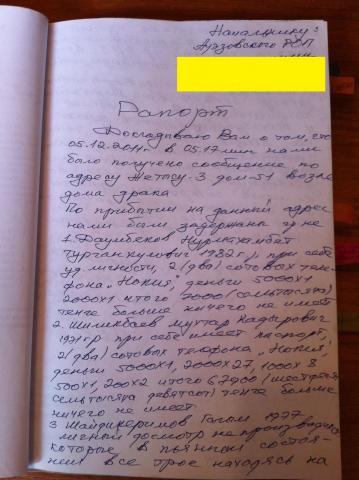 Начальнику:
Ауэзовского РОП
Рапорт
Докладываю Вам о том, что
05.12.2011г. в 05.17 мин нами
было получено сообщение по
адресу Жетысу-3 дом-51 возле
дома драка
По прибытии на данный адрес
нами были задержаны гр-не
1. Даумбеков Нурмахамбет
Турганкулович 1982г), при себе
уд. личности, 2(два) сотовых теле-
фона „Нокия", деньги 5000х1
2000х1 итого 7000 (семьтысяч)
тенге больше ничего не имеет
2. Шимкбаев Мухтар Кадырович
1971гр. при себе имеет паспорт,
2(два) сотовых телефона „Нокия",
деньги 5000х1, 2000х27, 1000х8
500х1, 200х2 итого 67900 (шестьдесят
семьтысяч девятсот) тенге больше
ничего не имеет.
3 Шайдикеримов Галым 1977
личный досмотр не производился
которые в пьянном состоя-
нии все трое находясь на